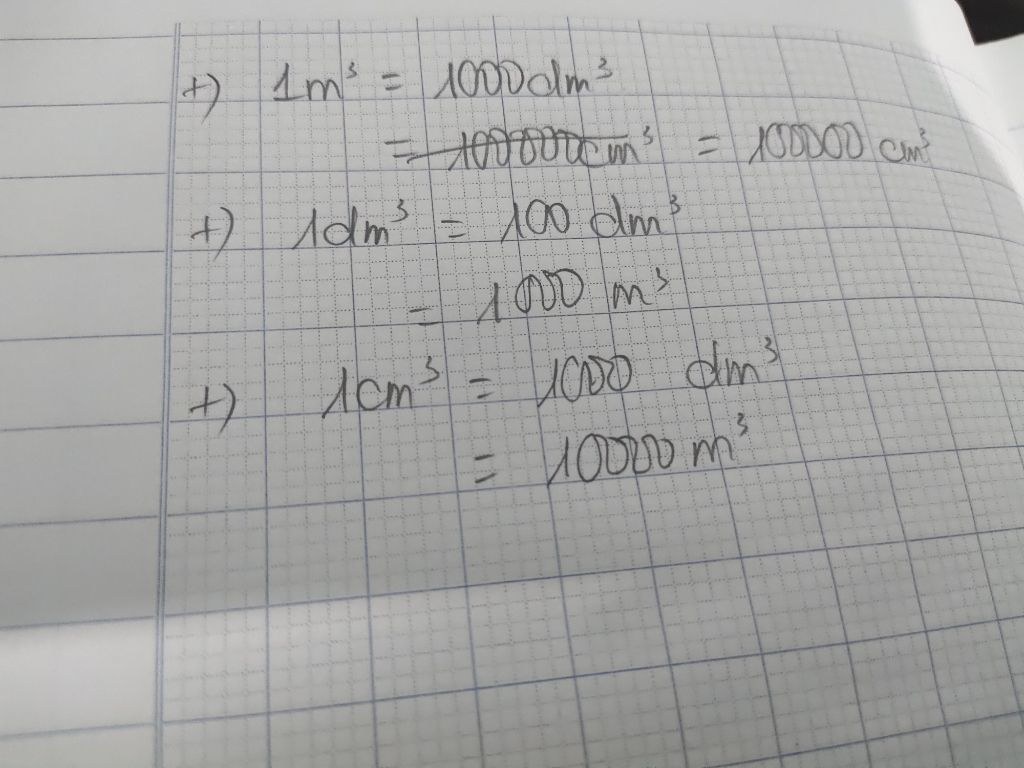 +) 1m³ = 1000dm³
= 1000000cm³ = 100000 cm³
+) 1dm³ = 100 dm³
= 1000 m³
+) 1cm³ = 1000 dm³
= 10000 m³